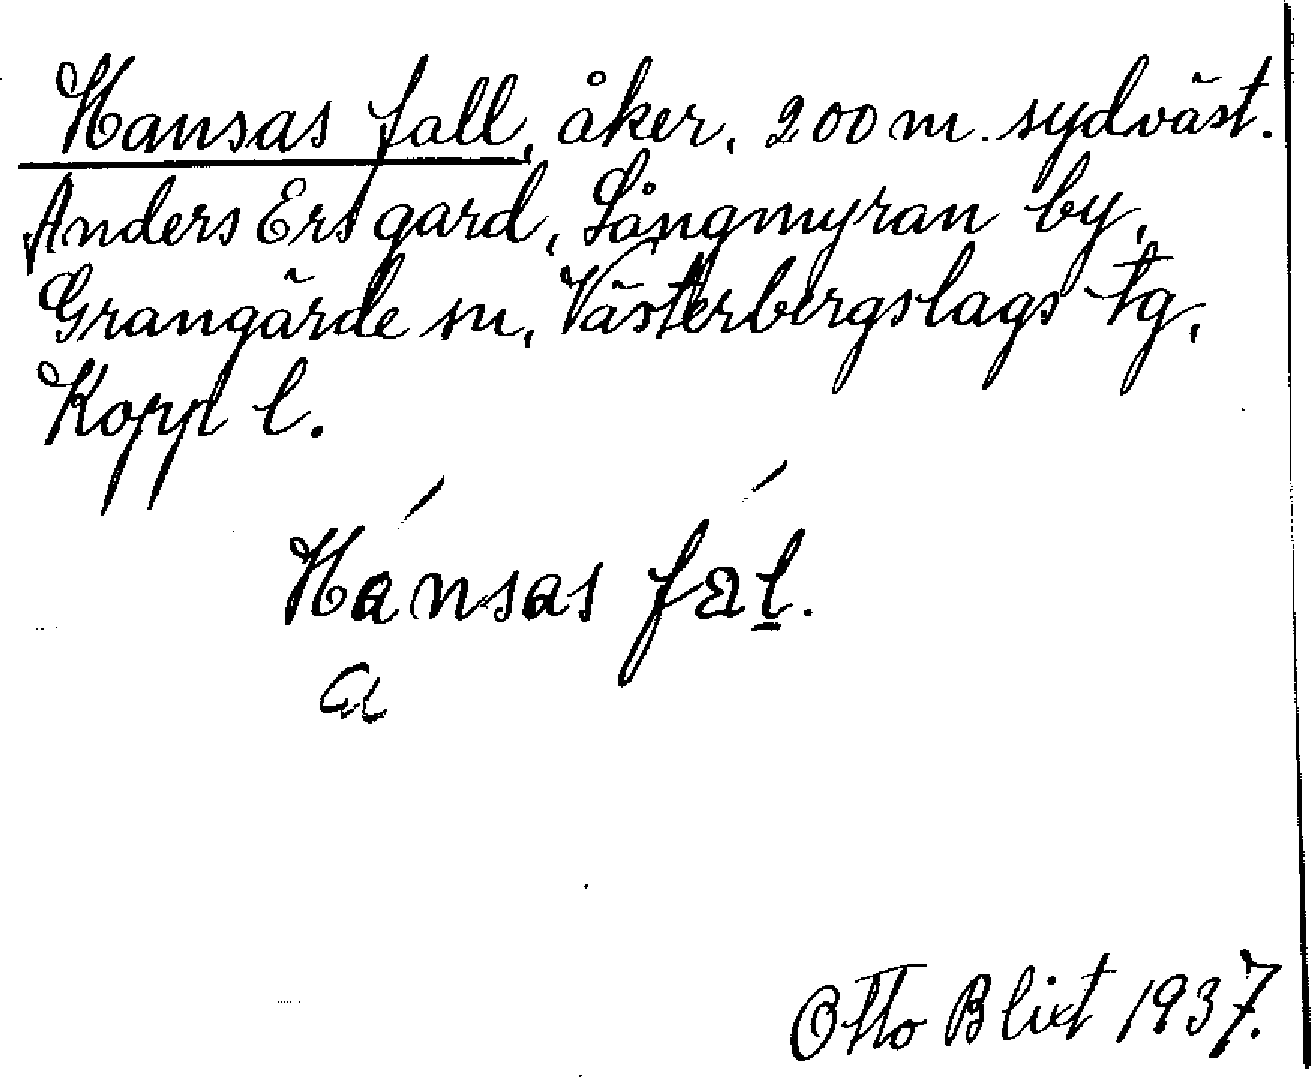 Hansas fall, åker, 200 m. sydväst.
Anders Ers gard, Långmyran by,
Grangärde sn, Västerbergslags tg,
Kopp l.
Hánsas fál.
a
Otto Blixt 1937.